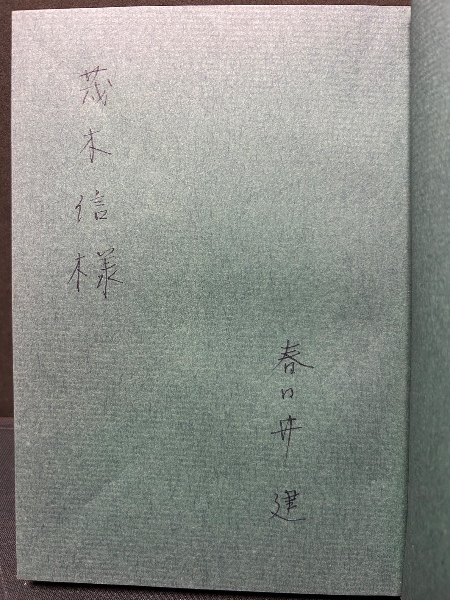 春日井 建
茂木信様